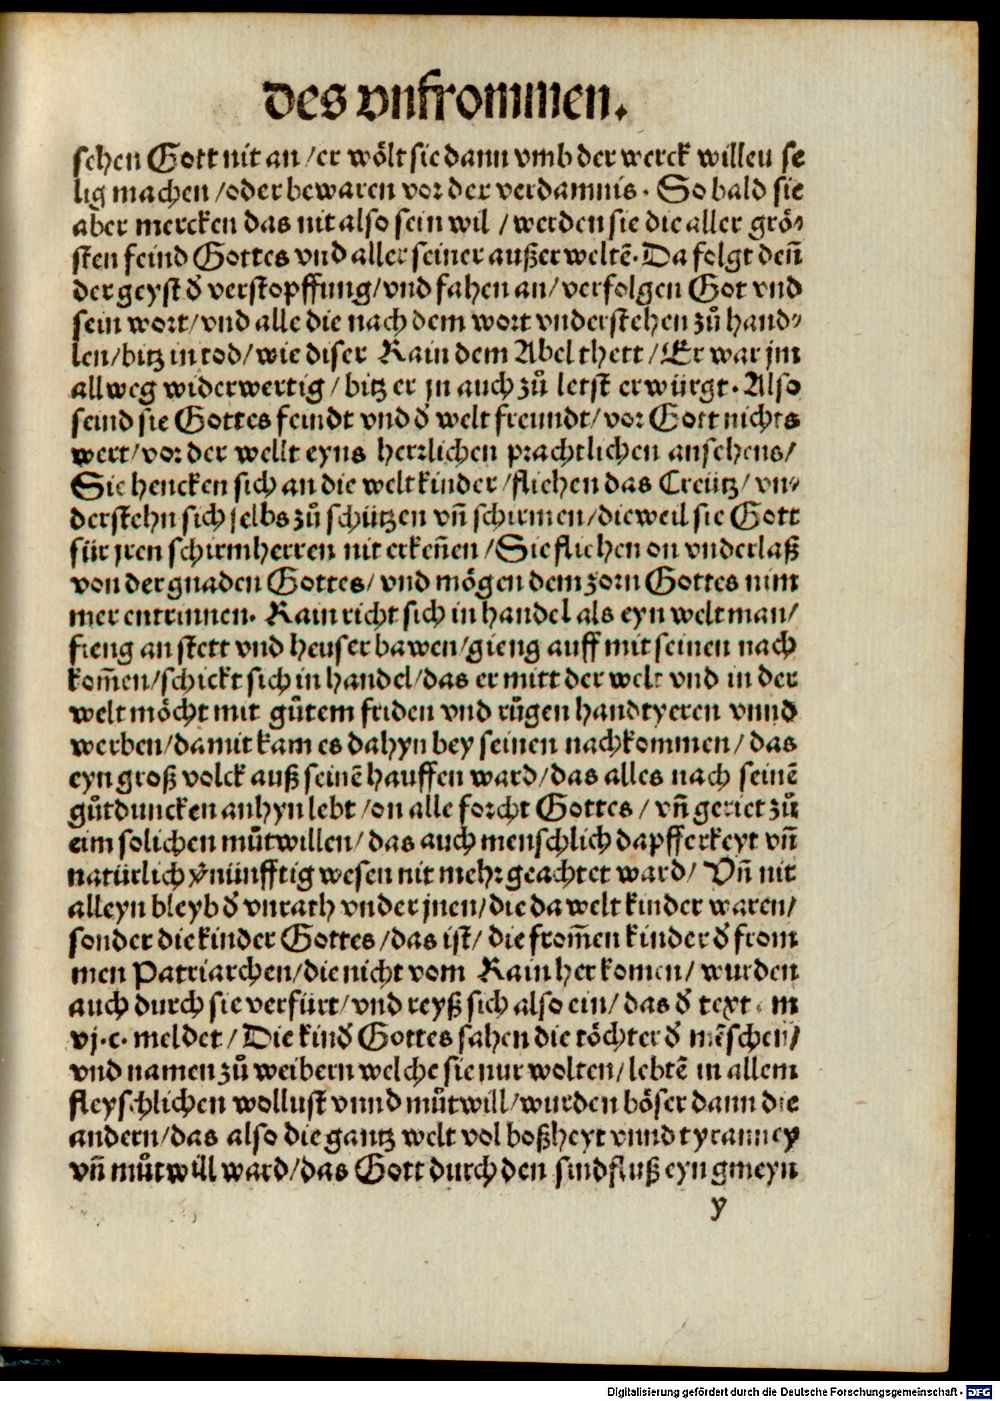 des vnfrommen.
sehen Gott nit an /er wölt sie dann vmb der werck willen se
lig machen /oder bewaren vor der verdamnis. So bald sie
aber mercken das nit also sein wil /werden sie die aller grö⸗
sten feind Gottes vnd aller seiner außerweltē. Da folgt deñ
der geyst d̓ verstopffung/vnd fahen an/verfolgen Got vnd
sein wort/vnd alle die nach dem wort vnderstehen zů hand⸗
len/bitz in tod/wie diser Kain dem Abel thett /Er war jm
allweg widerwertig /bitz er jn auch zů letst erwürgt. Also
seind sie Gottes feindt vnd d̓ welt freundt/vor Gott nichts
wert/vor der wellt eyns herrlichen prachtlichen ansehens/
Sie hencken sich an die weltkinder /fliehen das Creütz/vn⸗
derstehn sich selbs zů schützen vñ schirmen/dieweil sie Gott
für jren schirmherren nit erkeñen /Sie fliehen on vnderlaß
von der gnaden Gottes/vnd mögen dem zorn Gottes nim
mer entrinnen. Kain richt sich in handel als eyn weltman/
fieng an stett vnd heuser bawen/gieng auff mit seinen nach
kom̄en/schickt sich in handel/das er mitt der welt vnd in der
welt möcht mit gůtem friden vnd růgen handtyeren vnnd
werben/damit kam es dahyn bey seinen nachkommen/das
eyn groß volck auß seinē hauffen ward/das alles nach seinē
gůtduncken anhyn lebt /on alle forcht Gottes /vñ geriet zů
eim solichen můtwillen/das auch menschlich dapfferkeyt vñ
natürlich v̓nünfftig wesen nit mehr geachtet ward/ Vñ nit
alleyn bleyb d̓ vnrath vnder jnen/die da welt kinder waren/
sonder die kinder Gottes/das ist/die from̄en kinder d̓ from
men Patriarchen/die nicht vom Kain her komen/wurden
auch durch sie verfürt/vnd reyß sich also ein/das d̓ text im
vj.c. meldet /Die kind̓ Gottes sahen die töchter d̓ mēschen/
vnd namen zů weibern welche sie nur wolten/lebtē in allem
fleyschlichen wollust vnnd můtwill/wurden böser dann die
andern/das also die gantz welt vol boßheyt vnnd tyranney
vñ můtwill ward/das Gott durch den sindfluß eyn gmeyn
y
Digitalisierung gefördert durch die Deutsche Forschungsgemeinschaft - DFG